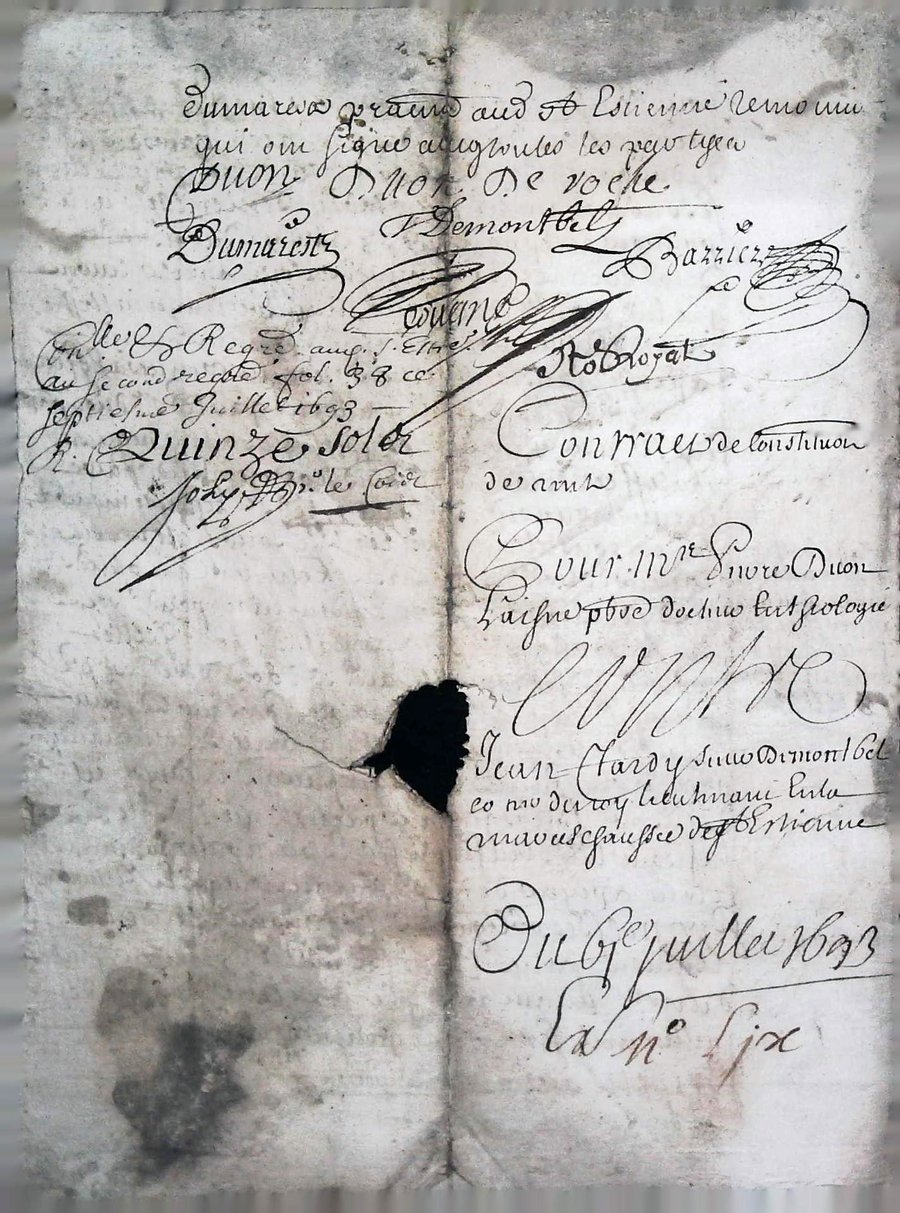 Dumarest praticien aud St Estienne temoins
qui ont signe avec toutes les parties
Duon Duon De roche
Demontbel
Dumarestz Barrier
Jouane
Conlle & Regré. aug. s. Estne.
au second regtre fol. 38 ce
septiesme Juillet 1693
R. Quinze solz
No Royal
Contract de Constitution
de rente
Pour Mre Duon
Laisne pbre docteur En theologie
Contre
Jean Chardy sieur Demontbel
du roy lieutenant En la
mareschaussee de St Estienne
Du 6e juillet 1693
La no Ljx